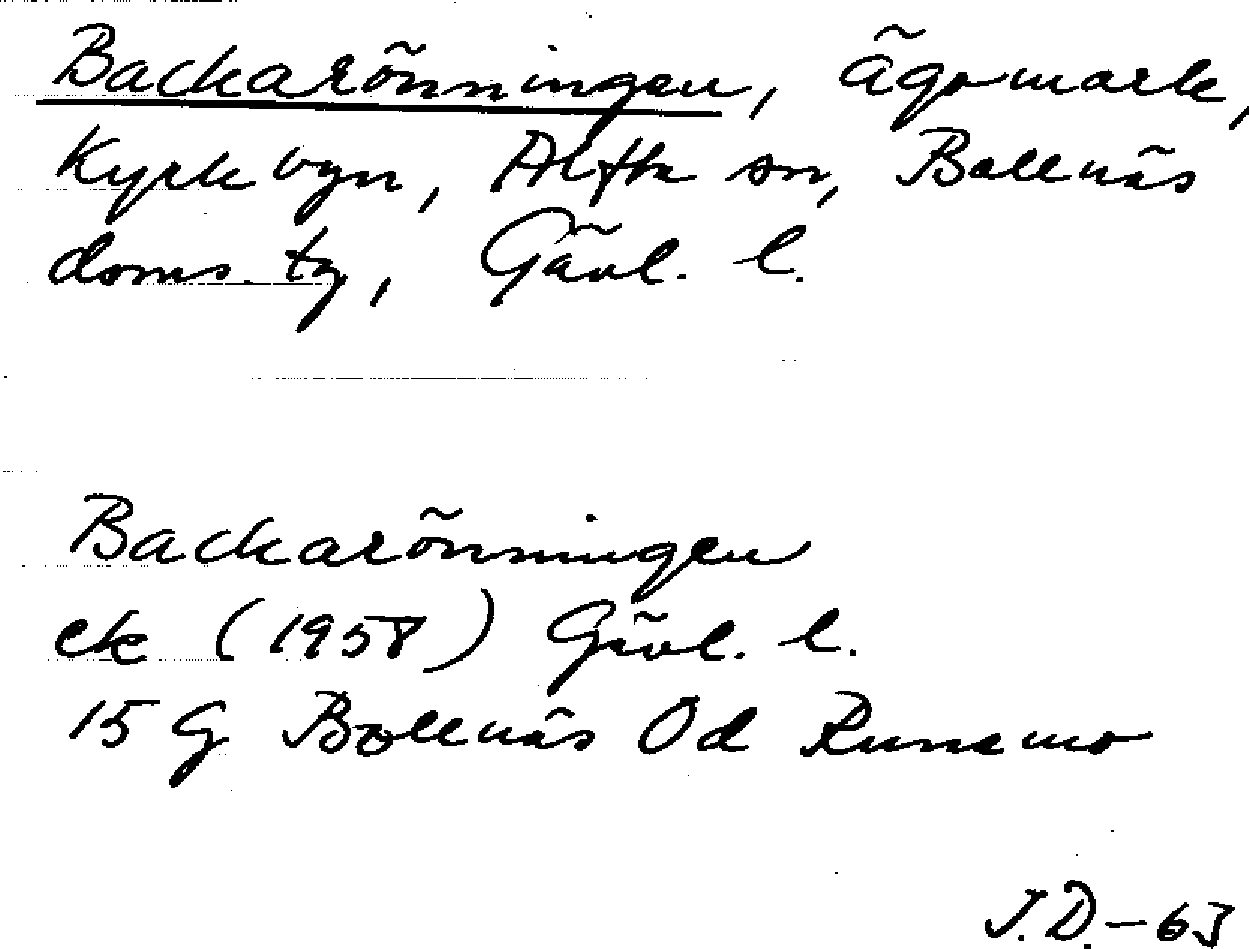 Backarönningen, ägomark,
Kyrkbyn, Alfta sn, Bollnäs
doms. tg, Gävl. l.
Backarönningen
ek (1958) Gävl. l.
15 G Bollnäs Od Runemo
J.D.-63